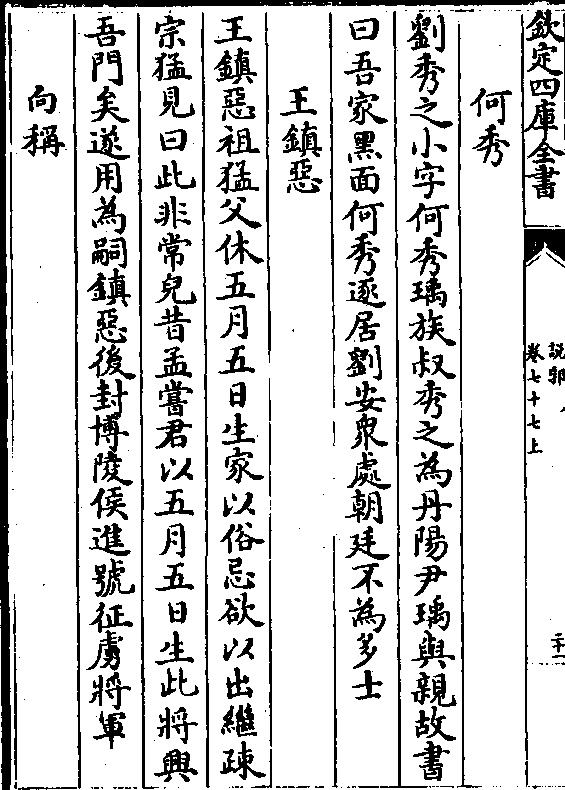 欽定四庫全書
說郛
卷七十七上
二十一
何秀
劉秀之小字何秀瑀族叔秀之為丹陽尹瑀與親故書
曰吾家黑面何秀逐居劉安衆處朝廷不為多士
王鎮惡
王鎮惡祖猛父休五月五日生家以俗忌欲以出繼疎
宗猛見曰此非常兒昔孟嘗君以五月五日生此將興
吾門矣遂用為嗣鎮惡後封博陵侯進號征虜將軍
向稱